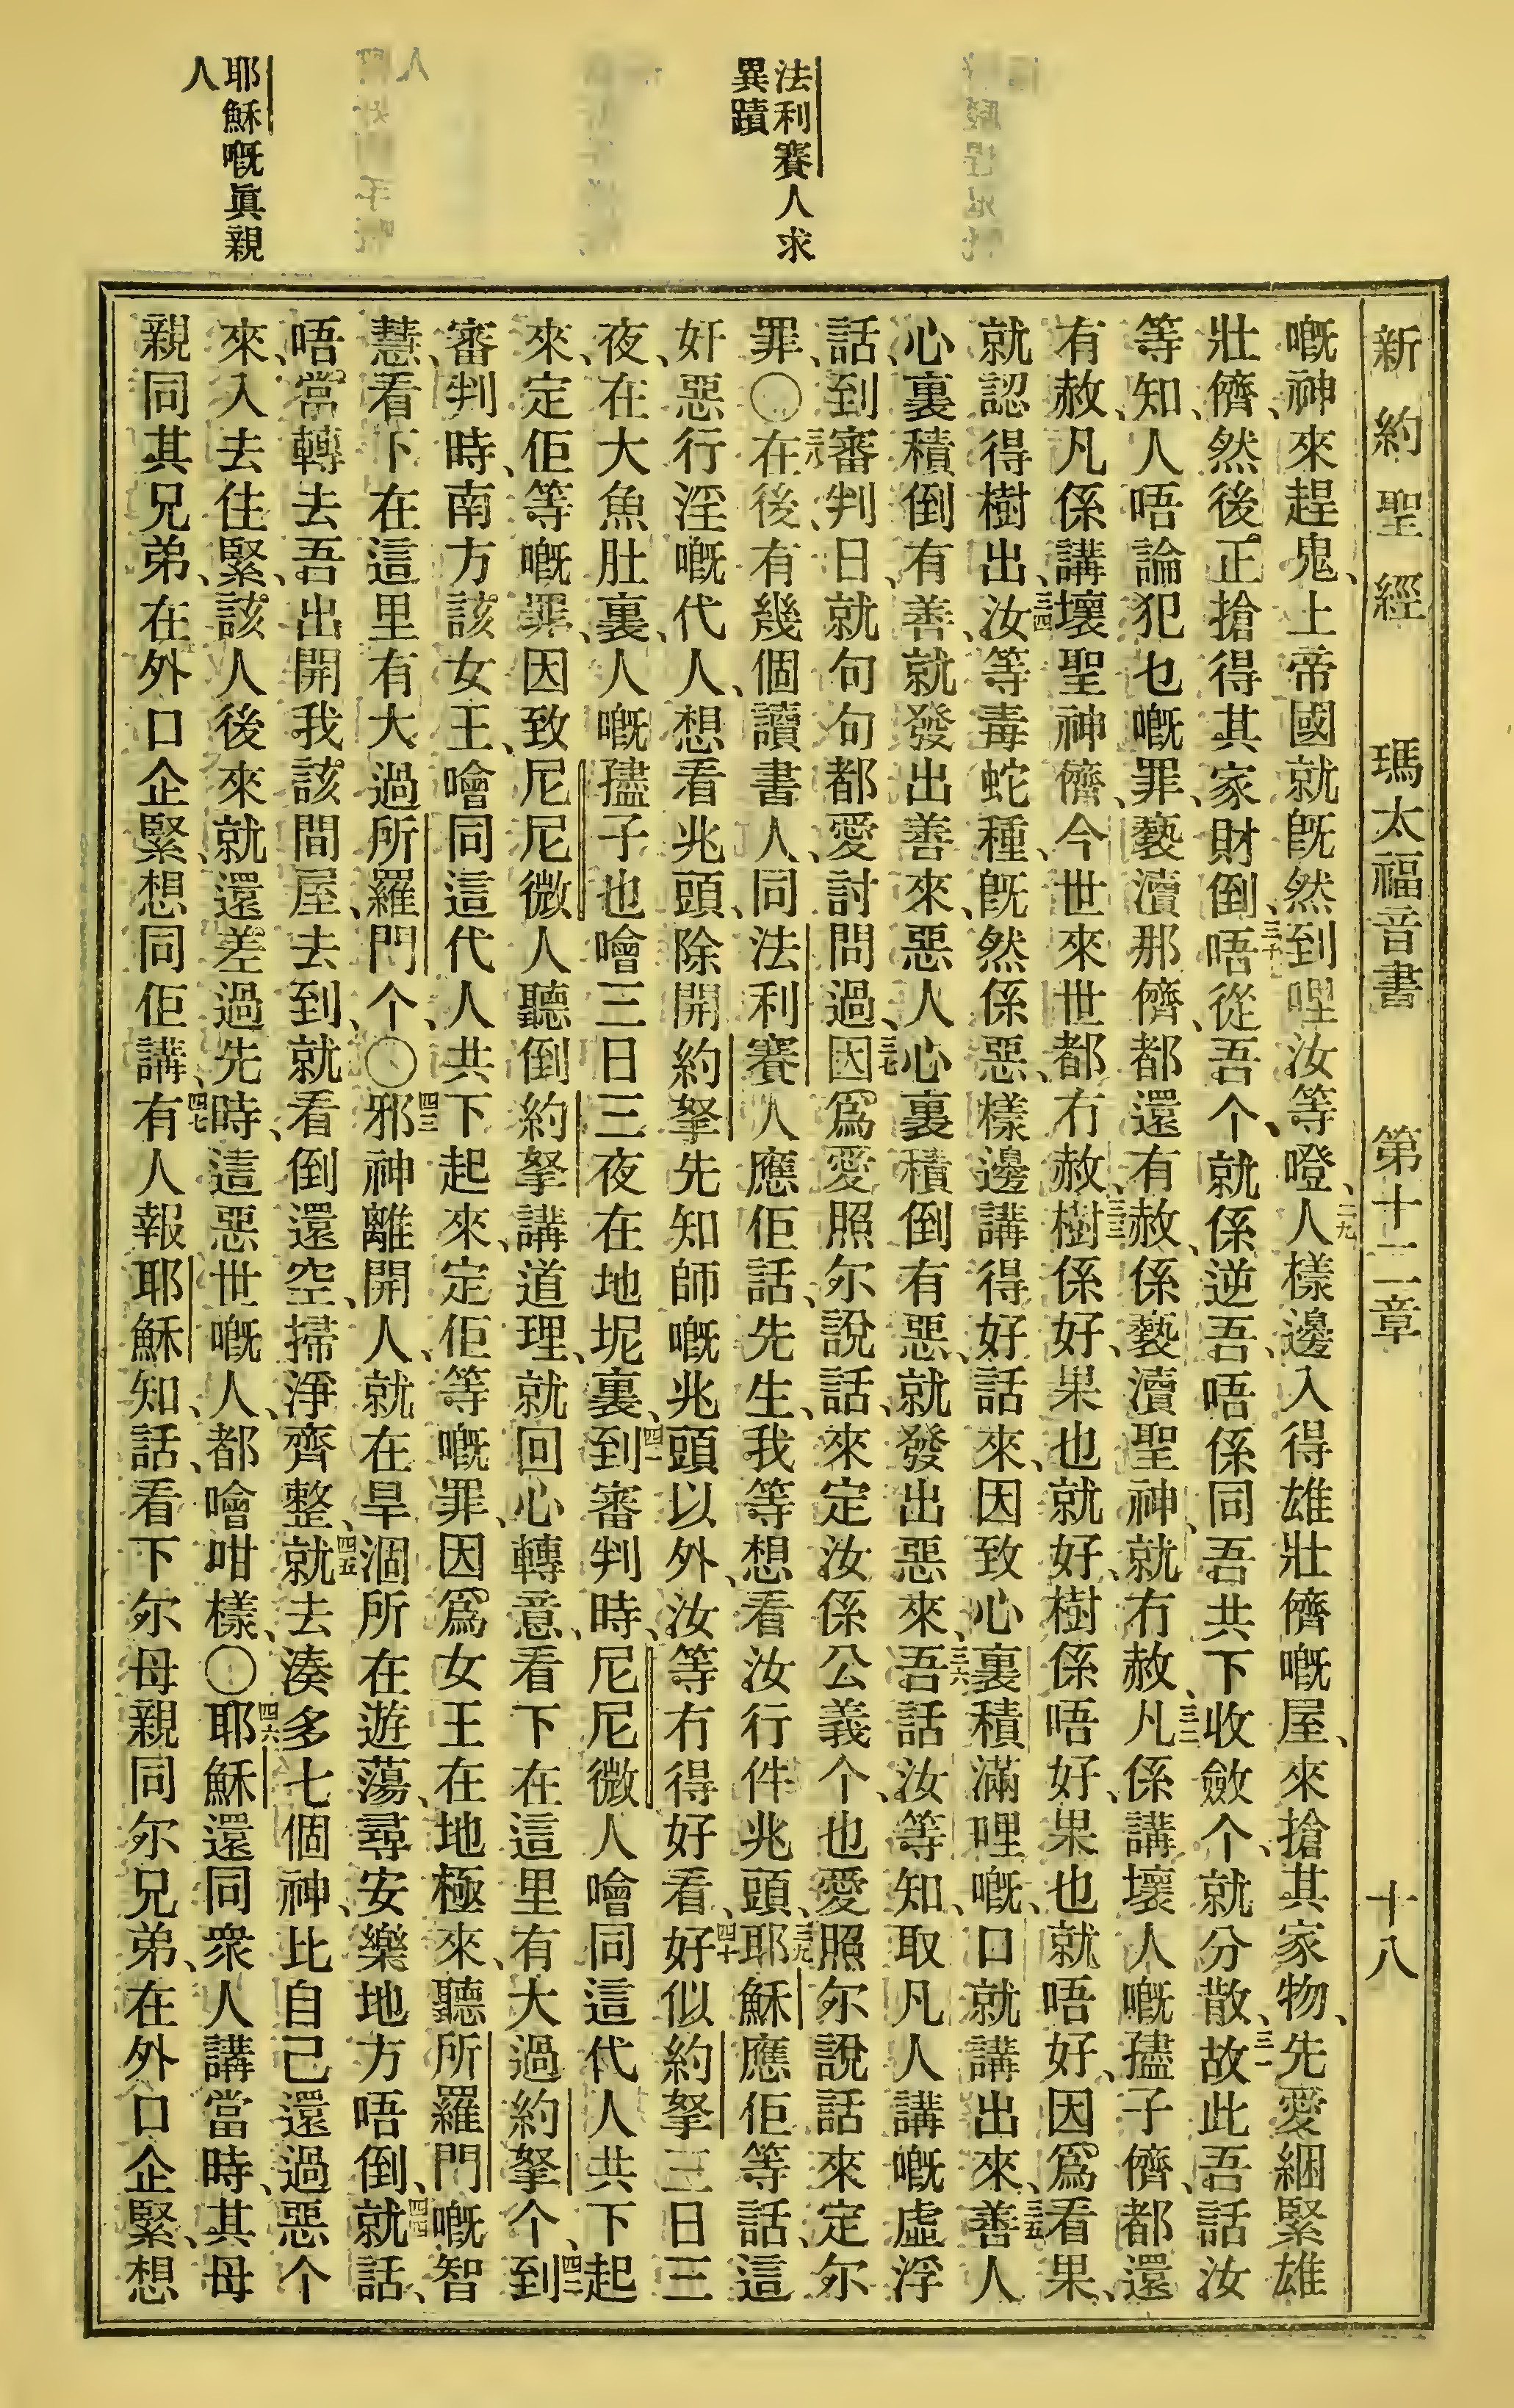 法利賽人求
異蹟
耶穌嘅眞親
人
新約聖經　瑪太福音書　第十二章　十八
嘅神來趕鬼、上帝國就旣然到哩汝等噔、二九人樣邊入得雄壯儕嘅屋、來搶其家物、先愛綑緊雄
壯儕、然後正搶得其家財倒、三十唔從吾个、就係逆吾、唔係同吾共下收斂个、就分散、三一故此吾話汝
等知、人唔論犯乜嘅罪、褻瀆那儕、都還有赦、係褻瀆聖神、就冇赦、三二凡係講壞人嘅孻子儕、都還
有赦、凡係講壞聖神儕、今世來世都冇赦、三三樹係好、果也就好、樹係唔好、果也就唔好、因爲看果、
就認得樹出、三四汝等毒蛇種、旣然係惡、樣邊講得好話來、因致心裏積滿哩嘅、口就講出來、三五善人
心裏積倒有善、就發出善來、惡人心裏積倒有惡、就發出惡來、三六吾話汝等知、取凡人講嘅虛浮
話、到審判日、就句句都愛討問過、三七因爲愛照尔說話、來定汝係公義个、也愛照尔說話來定尔
罪、〇三八在後、有幾個讀書人、同法利賽人應佢話、先生、我等想看汝行件兆頭、三九耶穌應佢等話、這
奸惡行淫嘅代人、想看兆頭、除開約拏先知師嘅兆頭以外、汝等冇得好看、四十好似約拏三日三
夜、在大魚肚裏、人嘅孻子也噲三日三夜在地坭裏、四一到審判時、尼尼微人噲同這代人共下起
來、定佢等嘅罪、因致尼尼微人聽倒約拏講道理、就回心轉意、看下在這里有大過約拏个、四二到
審判時、南方該女王、噲同這代人共下起來、定佢等嘅罪、因爲女王在地極來、聽所羅門嘅智
慧、看下在這里有大過所羅門个、〇四三邪神離開人、就在旱涸所在遊蕩、尋安樂地方唔倒、四四就話、
唔當轉去吾出開我該間屋、去到、就看倒還空、掃淨齊整、四五就去湊多七個神、比自己還過惡个
來、入去住緊、該人後來就還差過先時、這惡世嘅人、都噲咁樣、〇四六耶穌還同衆人講當時、其母
親同其兄弟、在外口企緊、想同佢講、四七有人報耶穌知、話、看下尔母親同尔兄弟、在外口企緊、想